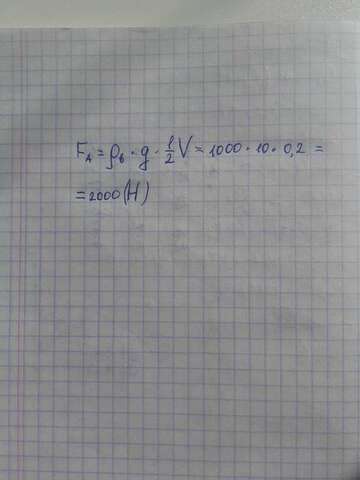 F_A = ρ_в · g · 1/2 V = 1000 · 10 · 0,2 =
= 2000 (Н)